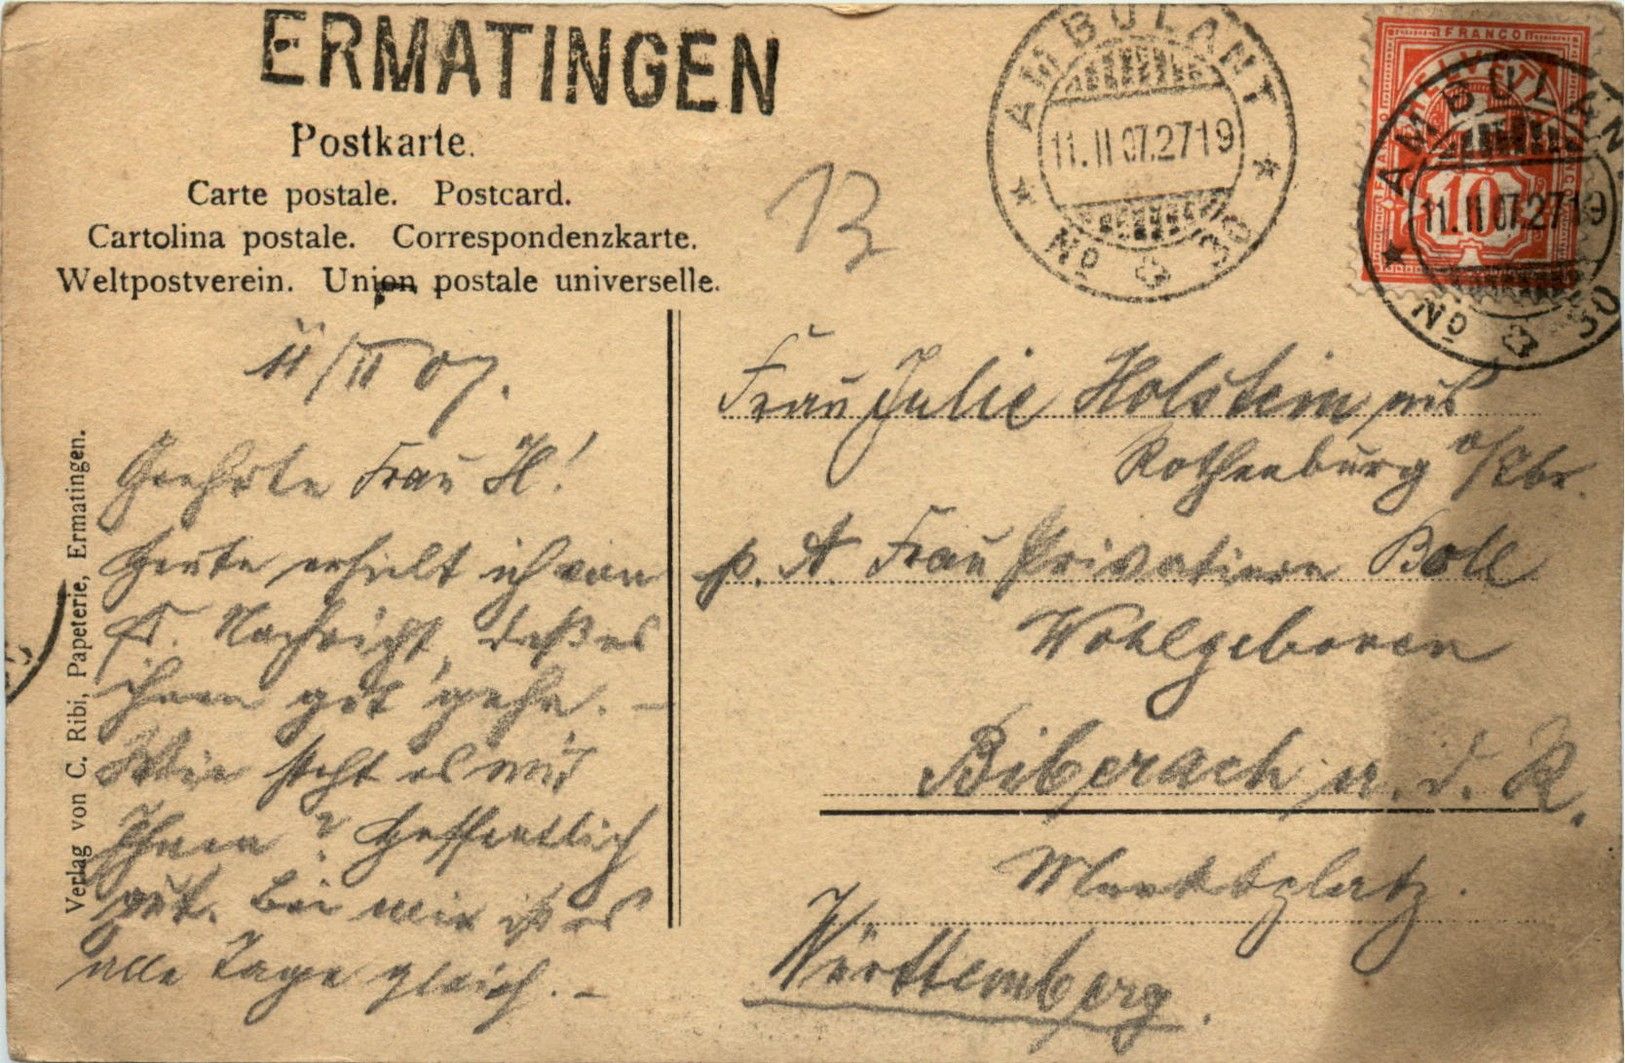 ERMATINGEN
Postkarte.
Carte postale. Postcard.
Cartolina postale. Correspondenzkarte.
Weltpostverein. Union postale universelle.
13
AMBULANT
11. II 07. 27 19
No 30
FRANCO
HELVETIA
10
AMBULANT
11. II 07. 27 19
No 30
11/II 07.
Geehrte Frau H!
Heute erhielt ich von
Nachricht, daß es
ihnen gut gehe. –
Wie steht es mit
Ihnen? Hoffentlich
gut. Bei mir ist es
alle Tage gleich. –
Frau Julie Holstein aus
Rothenburg
p. A. Frau Privatiere Boll
Wohlgeboren
Biberach a. d. R.
Marktplatz.
Württemberg.
Verlag von C. Ribi, Papeterie, Ermatingen.